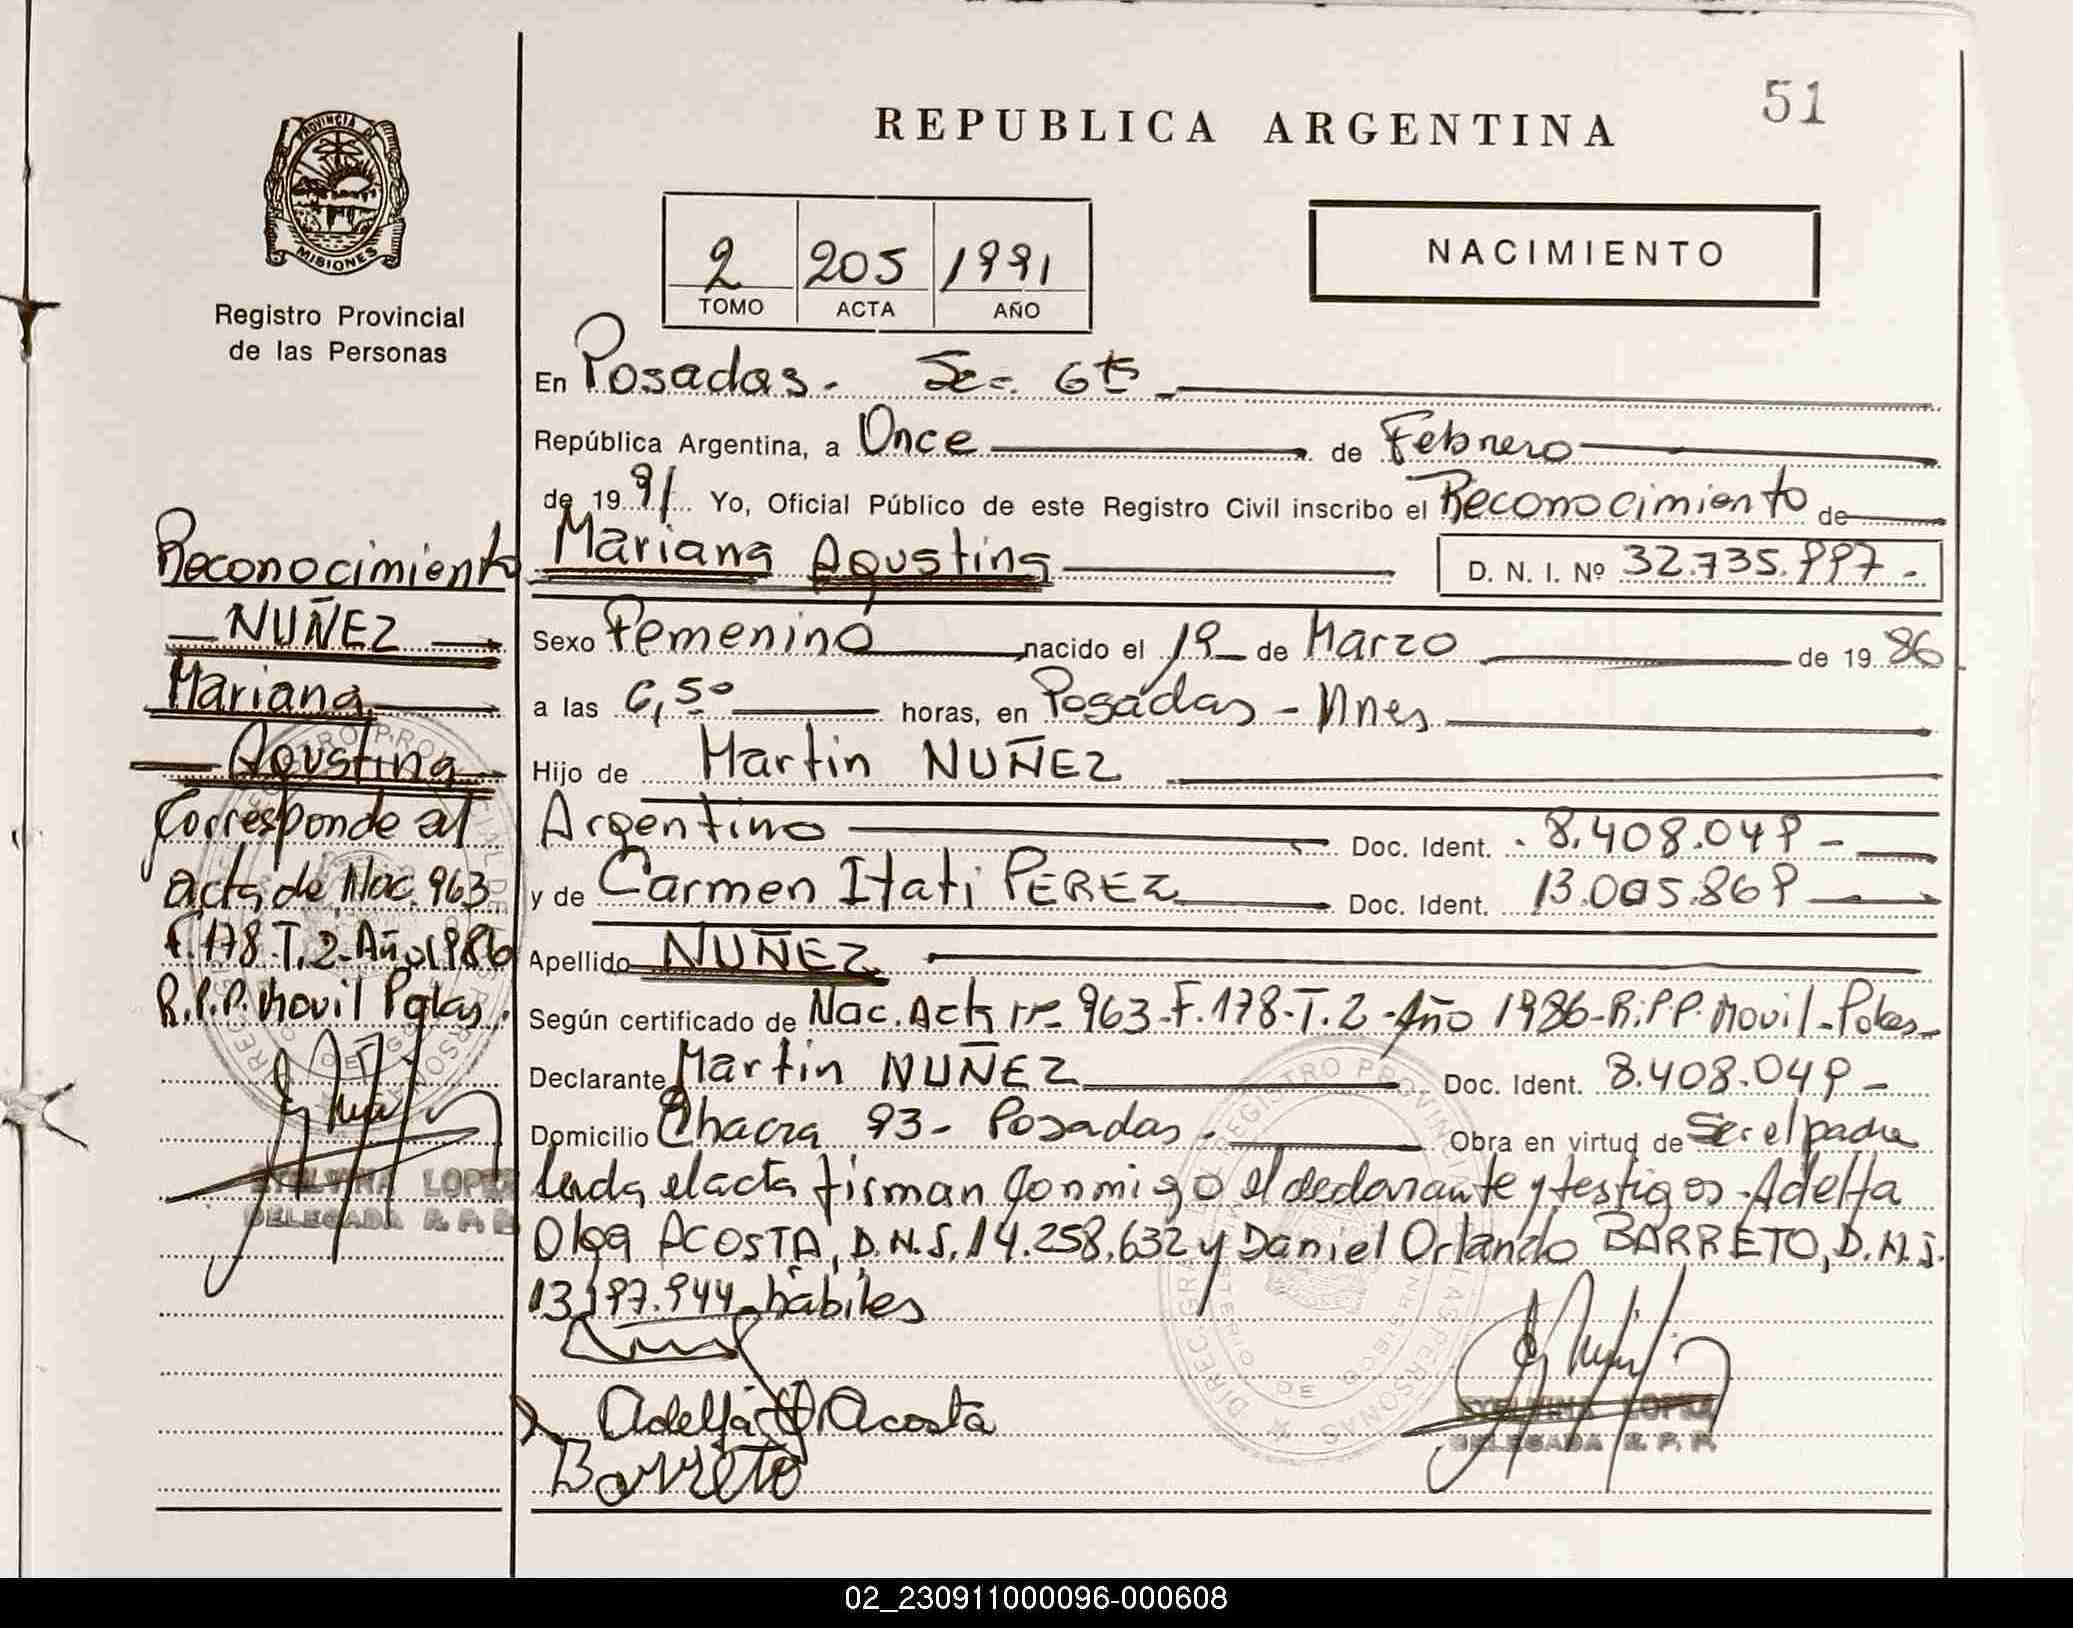 51
REPUBLICA ARGENTINA
PROVINCIA DE
MISIONES
Registro Provincial
de las Personas
2 205 1991
TOMO ACTA AÑO
NACIMIENTO
En Posadas.- Sec. 6ta
República Argentina, a Once de Febrero
de 1991 Yo, Oficial Público de este Registro Civil inscribo el Reconocimiento de
Mariana Agustina D. N. I. Nº 32.735.997.-
Sexo Femenino nacido el 19 de Marzo de 1986
a las 6,50 horas, en Posadas - Mnes
Hijo de Martin NUÑEZ
Argentino Doc. Ident. 8.408.049-
y de Carmen Itati PEREZ Doc. Ident. 13.005.869
Apellido NUÑEZ
Según certificado de Nac. Acta nº 963-F.178-T.2-Año 1986-R.P.P. Movil-Pdas-
Declarante Martin NUÑEZ Doc. Ident. 8.408.049-
Domicilio Chacra 93- Posadas.- Obra en virtud de Ser el padre
leida el acta firman conmigo el declarante y testigos-Adelfa
Olga ACOSTA, D.N.I. 14.258.632 y Daniel Orlando BARRETO, D.N.I.
13.197.944-habiles
Adelfa O. Acosta
Barreto
STELVINA LOPEZ
DELEGADA R. P. P.
Reconocimiento
NUÑEZ
Mariana
Agustina
Corresponde al
acta de Nac. 963
F.178-T.2-Año 1986
R.P.P. Movil Pdas.
STELVINA LOPEZ
DELEGADA R. P. P.
02_230911000096-000608